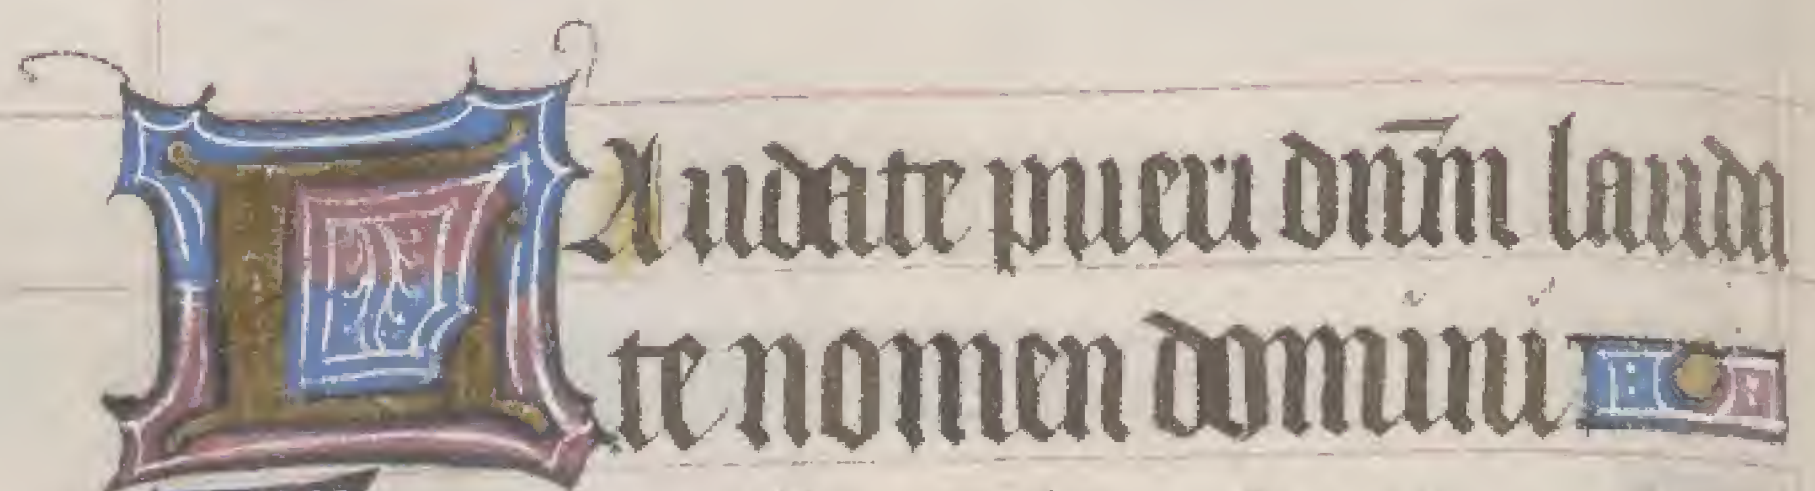 LAudate pueri dn̄m lauda
te nomen domini